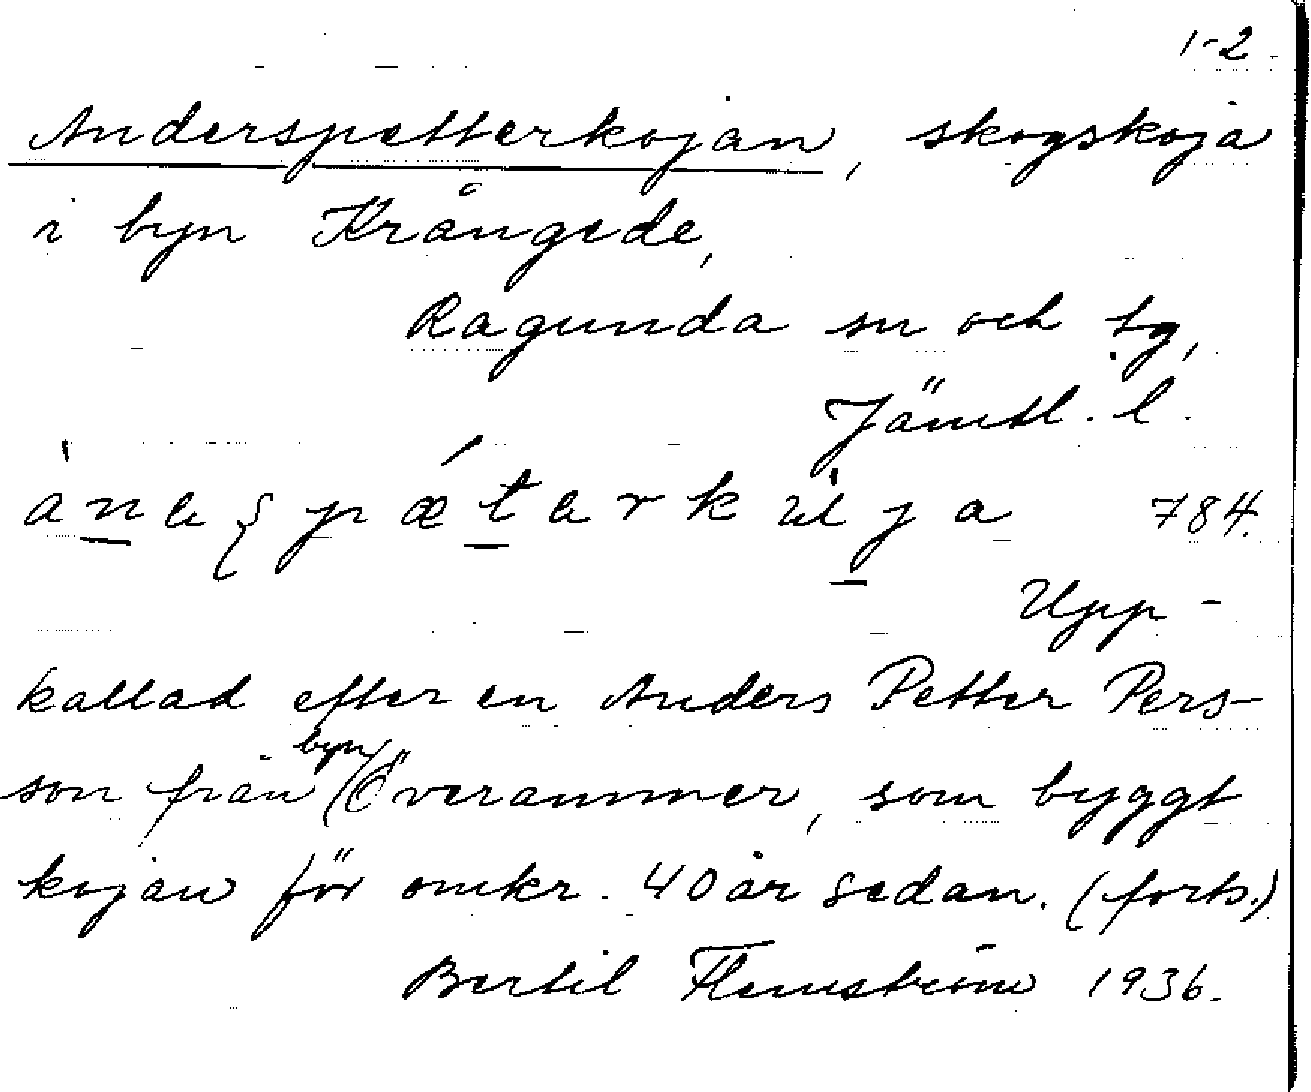 1-2
Anderspetterkojan, skogskoja
i byn Krångede,
Ragunda sn och tg,
Jämtl. l.
784.
Upp-
kallad efter en Anders Petter Pers-
son från byn Överammer, som byggt
kojan för omkr. 40 år sedan. (forts.)
Bertil Flemström 1936.